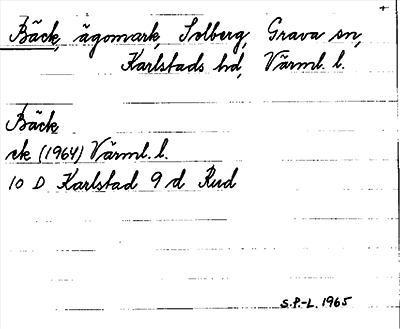 +
Bäck, ägomark, Solberg, Grava sn,
Karlstads hd, Värml. l.
Bäck
ek (1964) Värml. l.
10 D Karlstad 9 d Rud
S.P.-L. 1965